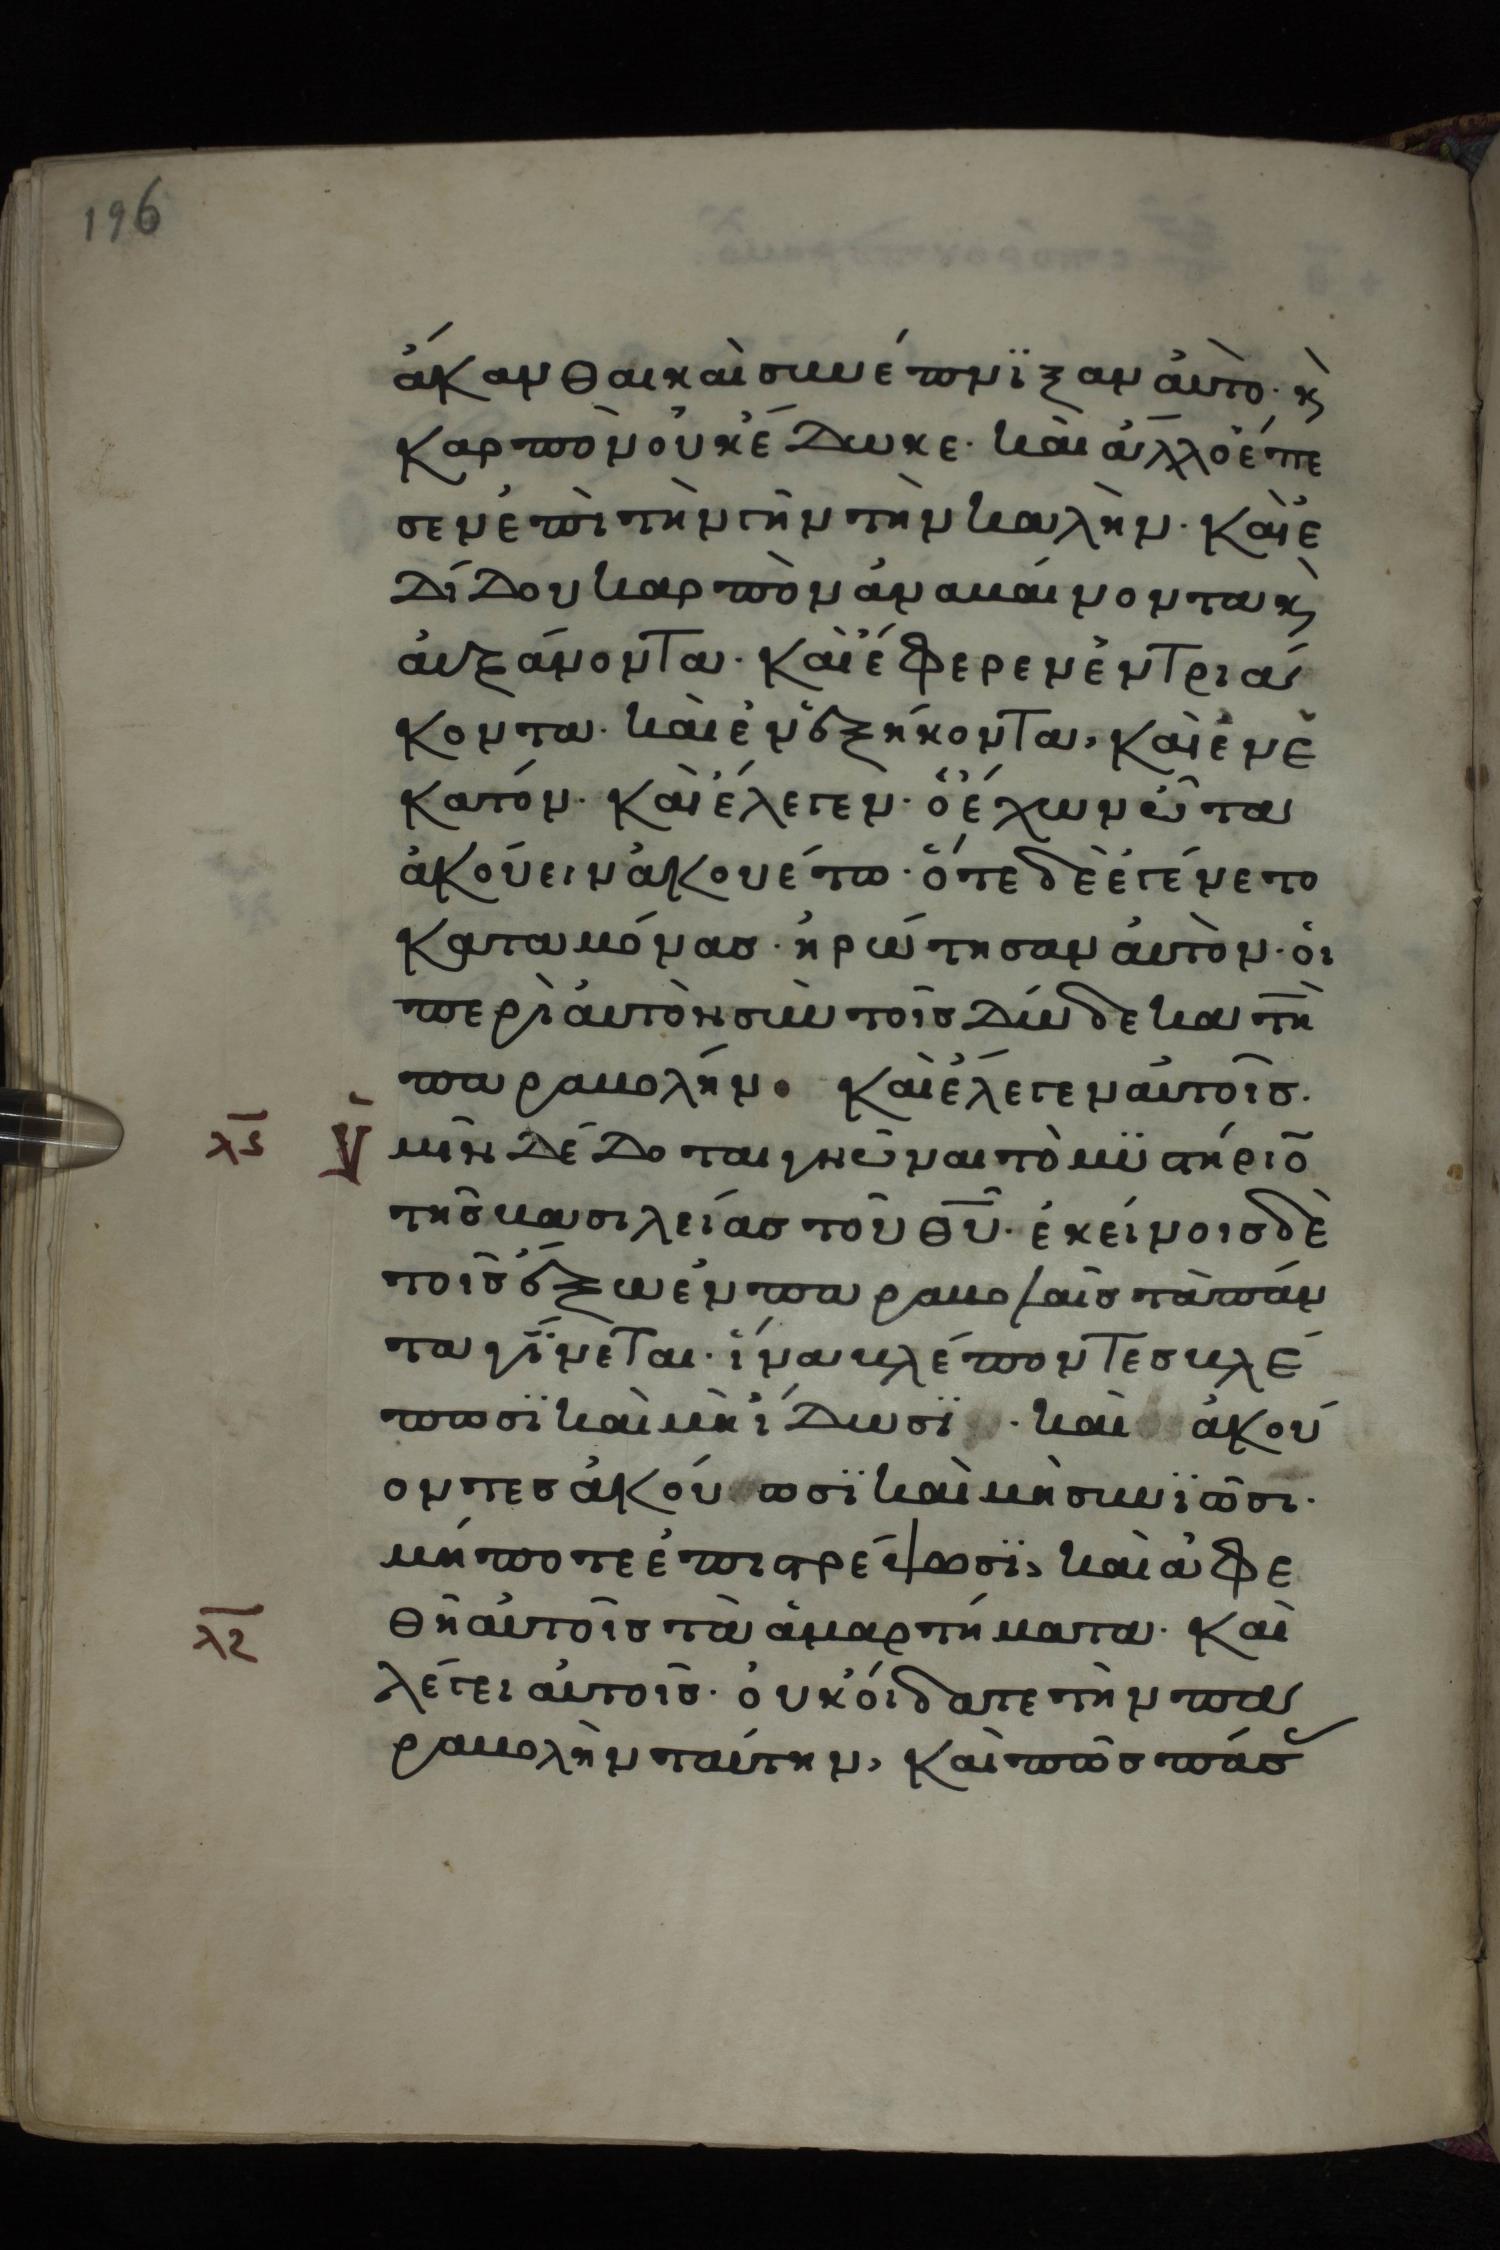 196
ἄκανθαι καὶ συνέπνϊξαν ἀυτὸ· κ̀
καρπὸν οὐκ ἔδωκε· καὶ ἄλλο ἔπε
σεν ἐπὶ τὴν γῆν τὴν καλὴν· καὶ ἐ
δίδου καρπὸν ἀναβαίνοντα κ̀
ἀυξάνοντα· καὶ ἔφερεν ἐν τριά
κοντα· καὶ ἐν ἑξήκοντα, καὶ ἐν ἑ
κατόν· καὶ ἔλεγεν· ὁ ἔχων ὦτα
ἀκούειν ἀκουέτω· ὅτε δὲ ἐγένετο
καταμόνας· ἠρώτησαν ἀυτὸν· ὁι
περὶ ἀυτὸν σὺν τοῖς δώδεκα τὴ̅
παραβολήν· καὶ ἔλεγεν ἀυτοῖς·
λ̅ϛ ὑ
μῖν δέδοται γνῶναι τὸ μϋστήριο̅
τῆς βασιλείας τοῦ θ̅υ̅· ἐκείνοις δὲ
τοῖς ἔξω ἐν παραβολαῖς τὰ πάν
τα γΐνεται· ἵνα βλέποντες βλέ
πωσϊ καὶ μὴ ἴδωσϊ · καὶ ἀκού
οντες ἀκούωσϊ καὶ μὴ συνϊῶσι·
μήποτε ἐπιστρέψωσϊ, καὶ ἀφε
λ̅ζ θῆ ἀυτοῖς τὰ ἁμαρτήματα· καὶ
λέγει ἀυτοῖς· ὀυκ ὄιδατε τὴν πα
ραβολὴν ταύτην, καὶ πῶς πάσ